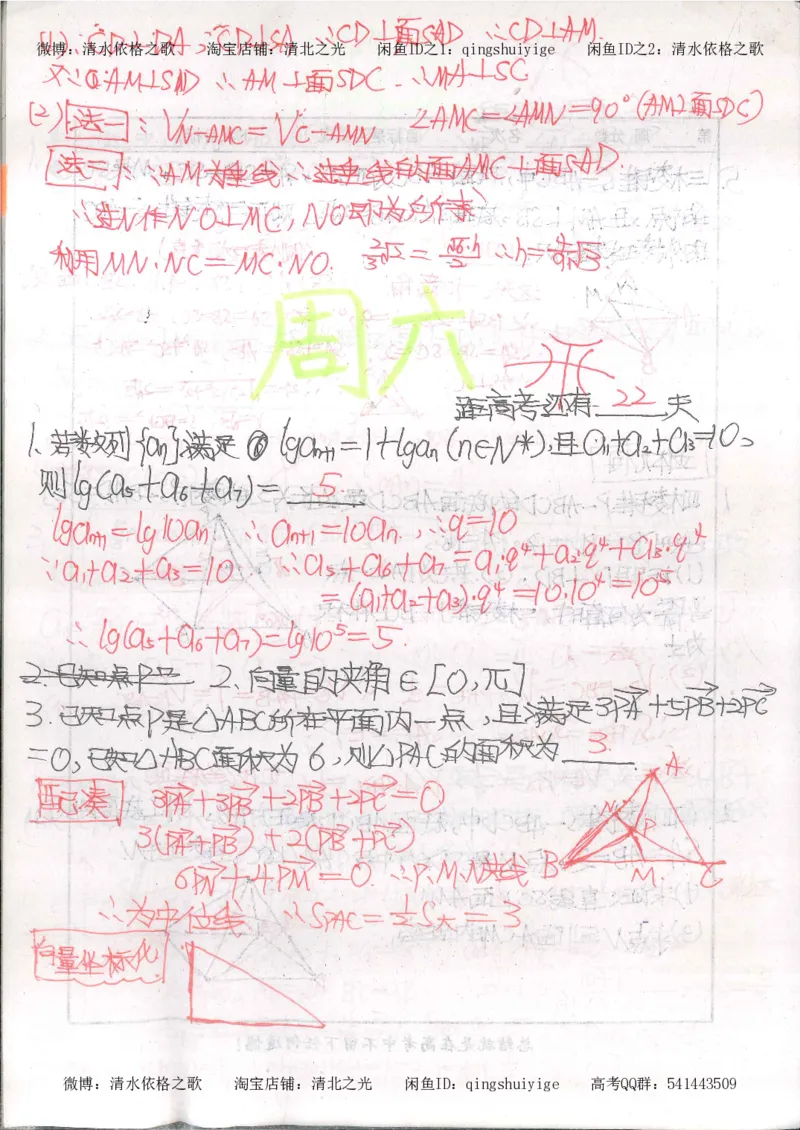 (1)∵CD⊥DA,CD⊥SA ∴CD⊥面SAD ∴CD⊥AM.
微博：清水依格之歌 淘宝店铺：清北之光 闲鱼ID之1：qingshuiyige 闲鱼ID之2：清水依格之歌
又∵AM⊥SD ∴AM⊥面SDC ∴MA⊥SC
(2)法一：V_{N-AMC}=V_{C-AMN} ∠AMC=∠AMN=90°(AM⊥面SDC)
法二：∵AM为垂线 ∴过垂线的面AMC⊥面SAD.
∴过N作NO⊥MC, NO即为所求
利用MN·NC=MC·NO.
周六
距高考还有 22 天
1、若数列{an}满足 lgan+1=1+lgan(n∈N*),且a1+a2+a3=10,
则lg(a5+a6+a7)= 5
lgan+1=lg10an ∴an+1=10an ∴q=10
∵a1+a2+a3=10 ∴a5+a6+a7=a1·q⁴+a2·q⁴+a3·q⁴
=(a1+a2+a3)·q⁴=10·10⁴=10⁵
∴lg(a5+a6+a7)=lg10⁵=5.
2.已知点P 2、向量的夹角∈[0,π]
3.已知点P是△ABC所在平面内一点,且满足3PA+5PB+2PC
=0,已知△ABC面积为6,则△PAC的面积为 3
配凑 3PA+3PB+2PB+2PC=0
3(PA+PB)+2(PB+PC)
6PN+4PM=0 ∴P、M、N共线
∴为中位线 ∴SPAC=½S大=3
A
N
P
B
M
C
向量坐标化
微博：清水依格之歌 淘宝店铺：清北之光 闲鱼ID：qingshuiyige 高考QQ群：541443509